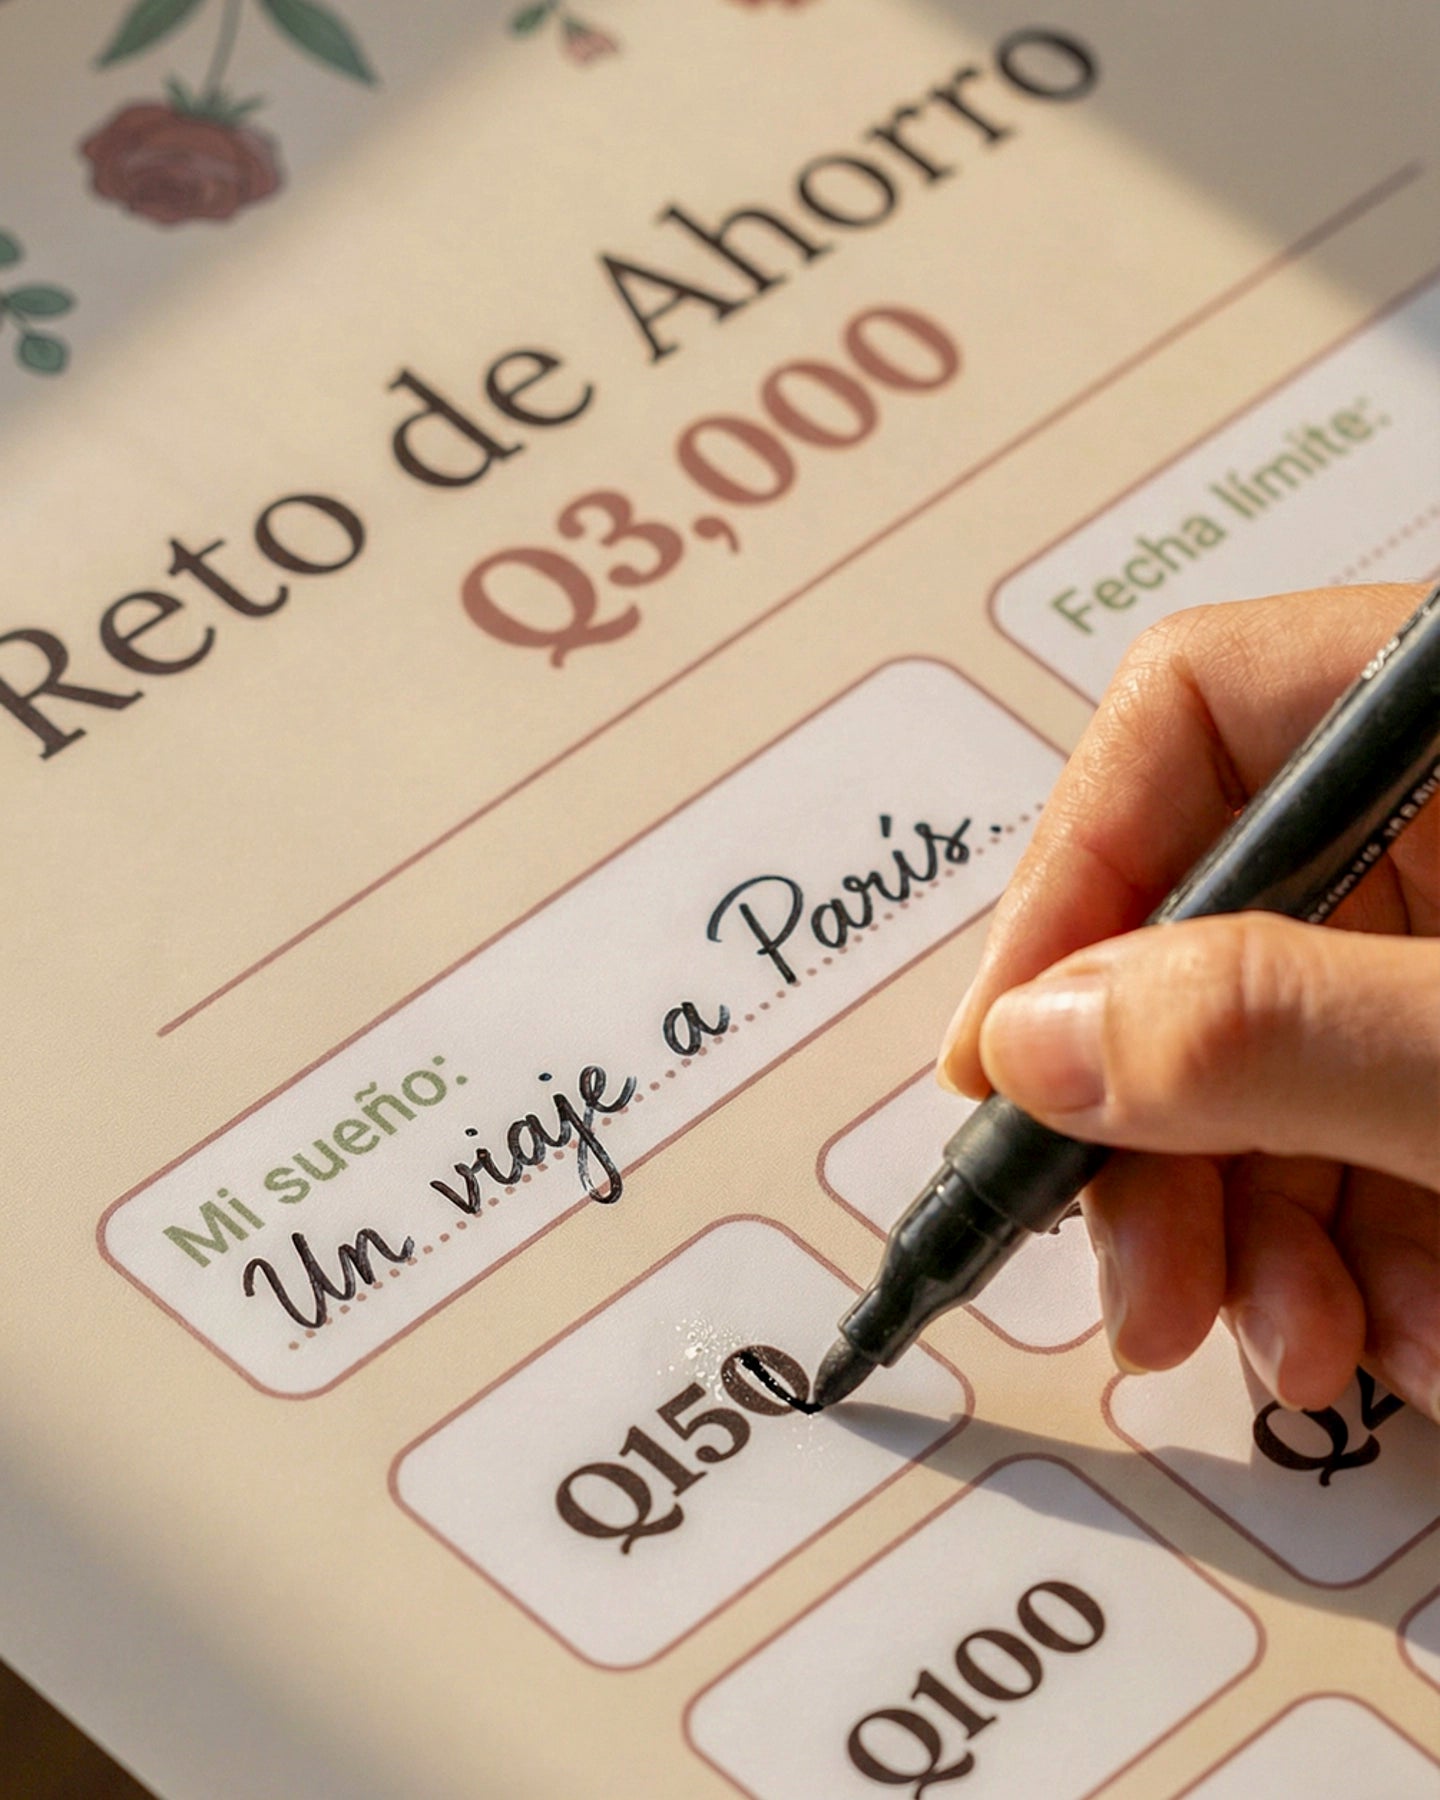 Reto de Ahorro
Q3,000
Fecha límite:
Mi sueño:
Un viaje a París.
Q150
Q100